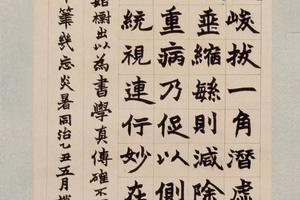 峻拔一角潛虛
垂縮緐則減除
重病乃促以側
統視連行妙在
出以為書學真傳確不
筆幾忘炎暑同治乙丑五月